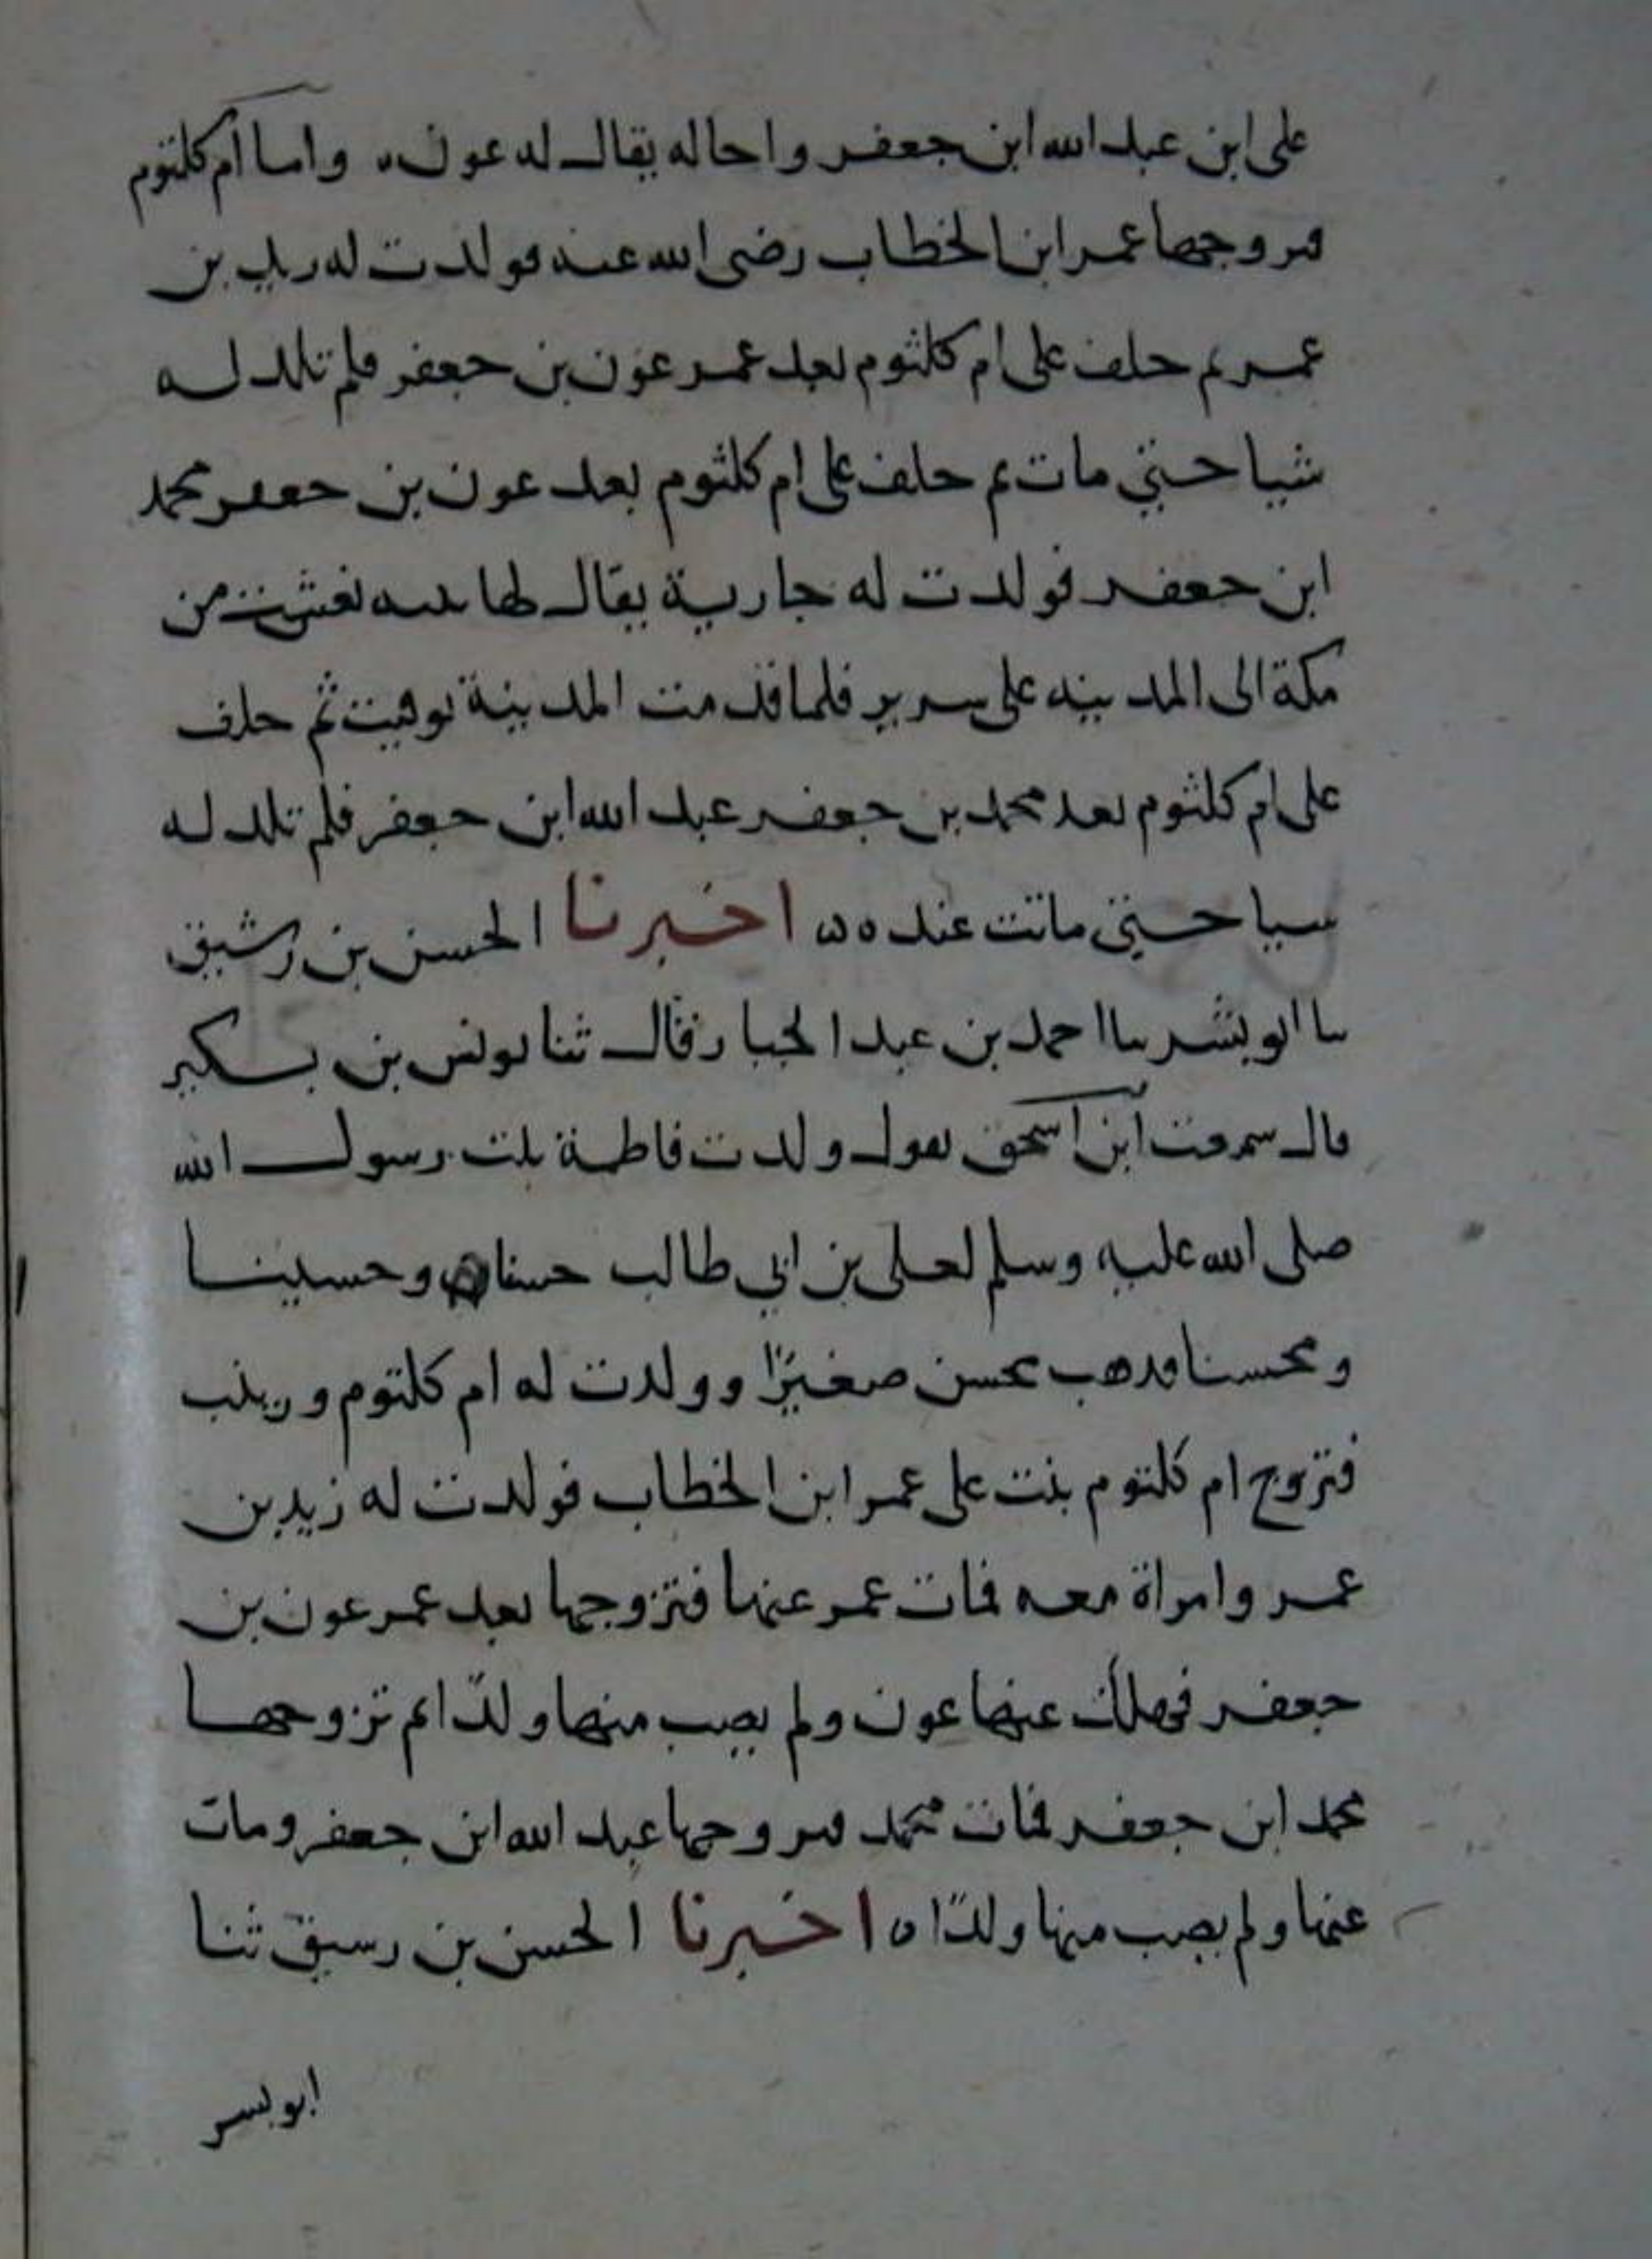 على ابن عبد الله ابن جعفر واخا له يقال له عون ه واما ام كلثوم
فتزوجها عمر ابن الخطاب رضى الله عنه فولدت له زيد بن
عمر ثم خلف على ام كلثوم بعد عمر عون بن جعفر فلم تلد له
شيا حتي مات ثم خلف على ام كلثوم بعد عون بن جعفر محمد
ابن جعفر فولدت له جارية يقال لها نعشت من
مكة الى المدينه على سرير فلما قدمت المدينة توفيت ثم خلف
على ام كلثوم بعد محمد بن جعفر عبد الله ابن جعفر فلم تلد له
شيا حتي ماتت عنده ه اخبرنا الحسن بن رشيق
نا ابو بشر نا احمد بن عبد الجبار قال ثنا يونس بن بكير
قال سمعت ابن اسحق يقول ولدت فاطمة بنت رسول الله
صلى الله عليه وسلم لعلى بن ابي طالب حسنا وحسينا
ومحسنا فذهب محسن صغيرًا وولدت له ام كلثوم وزينب
فتزوج ام كلتوم بنت على عمر ابن الخطاب فولدت له زيد بن
عمر وامراة معه فمات عمر عنها فتزوجها بعد عمر عون بن
جعفر فهلك عنها عون ولم يصب منها ولدًا ثم تزوجها
محمد ابن جعفر فمات محمد فتزوجها عبد الله ابن جعفر ومات
عنها ولم يصب منها ولدًا ه اخبرنا الحسن بن رسيق ثنا
ابو بسر